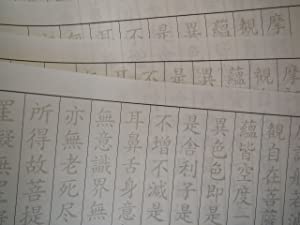 摩
觀
蘊
異
是
不
耳
觀
蘊
異
是
不
耳
觀自在菩
蘊皆空度一
異色色即是
是舍利子是
不增不減是
耳鼻舌身意
無意識界無
亦無老死盡
所得故菩提
罣礙無罣